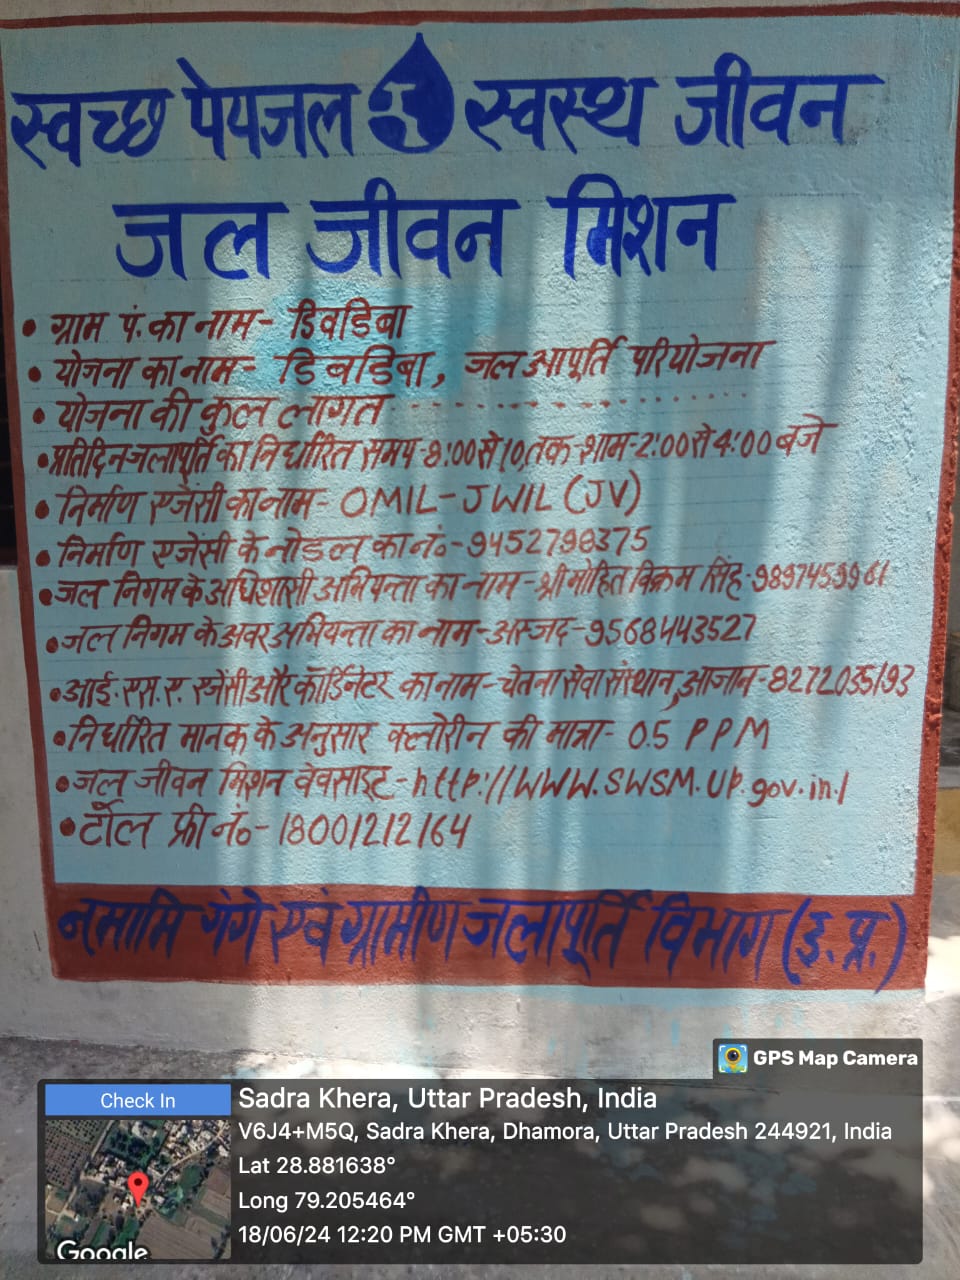 स्वच्छ पेयजल स्वस्थ जीवन
जल जीवन मिशन
• ग्राम पं. का नाम- डिबडिबा
• योजना का नाम- डिबडिबा, जल आपूर्ति परियोजना
• योजना की कुल लागत . . . . . . . . . . . . . . . . . .
• प्रतिदिन जलापूर्ति का निर्धारित समय-8:00 से 10, तक-शाम-2:00 से 4:00 बजे
• निर्माण एजेंसी का नाम- OMIL-JWIL (JV)
• निर्माण एजेंसी के नोडल का नं०-9452798375
• जल निगम के अधिशासी अभियन्ता का नाम-श्री मोहित विक्रम सिंह-9897459961
• जल निगम के अवर अभियन्ता का नाम-अस्जद-9568443527
• आई.एस.ए. एजेंसी और कॉर्डिनेटर का नाम-चेतना सेवा संस्थान, आजान-8272035193
• निर्धारित मानक के अनुसार क्लोरीन की मात्रा- 0.5 PPM
• जल जीवन मिशन वेवसाइट-http://WWW.SWSM.UP.gov.in/
• टोल फ्री नं०-18001212164
नमामि गंगे एवं ग्रामीण जलापूर्ति विभाग (उ.प्र.)
GPS Map Camera
Check In
Sadra Khera, Uttar Pradesh, India
V6J4+M5Q, Sadra Khera, Dhamora, Uttar Pradesh 244921, India
Lat 28.881638°
Long 79.205464°
18/06/24 12:20 PM GMT +05:30
Google